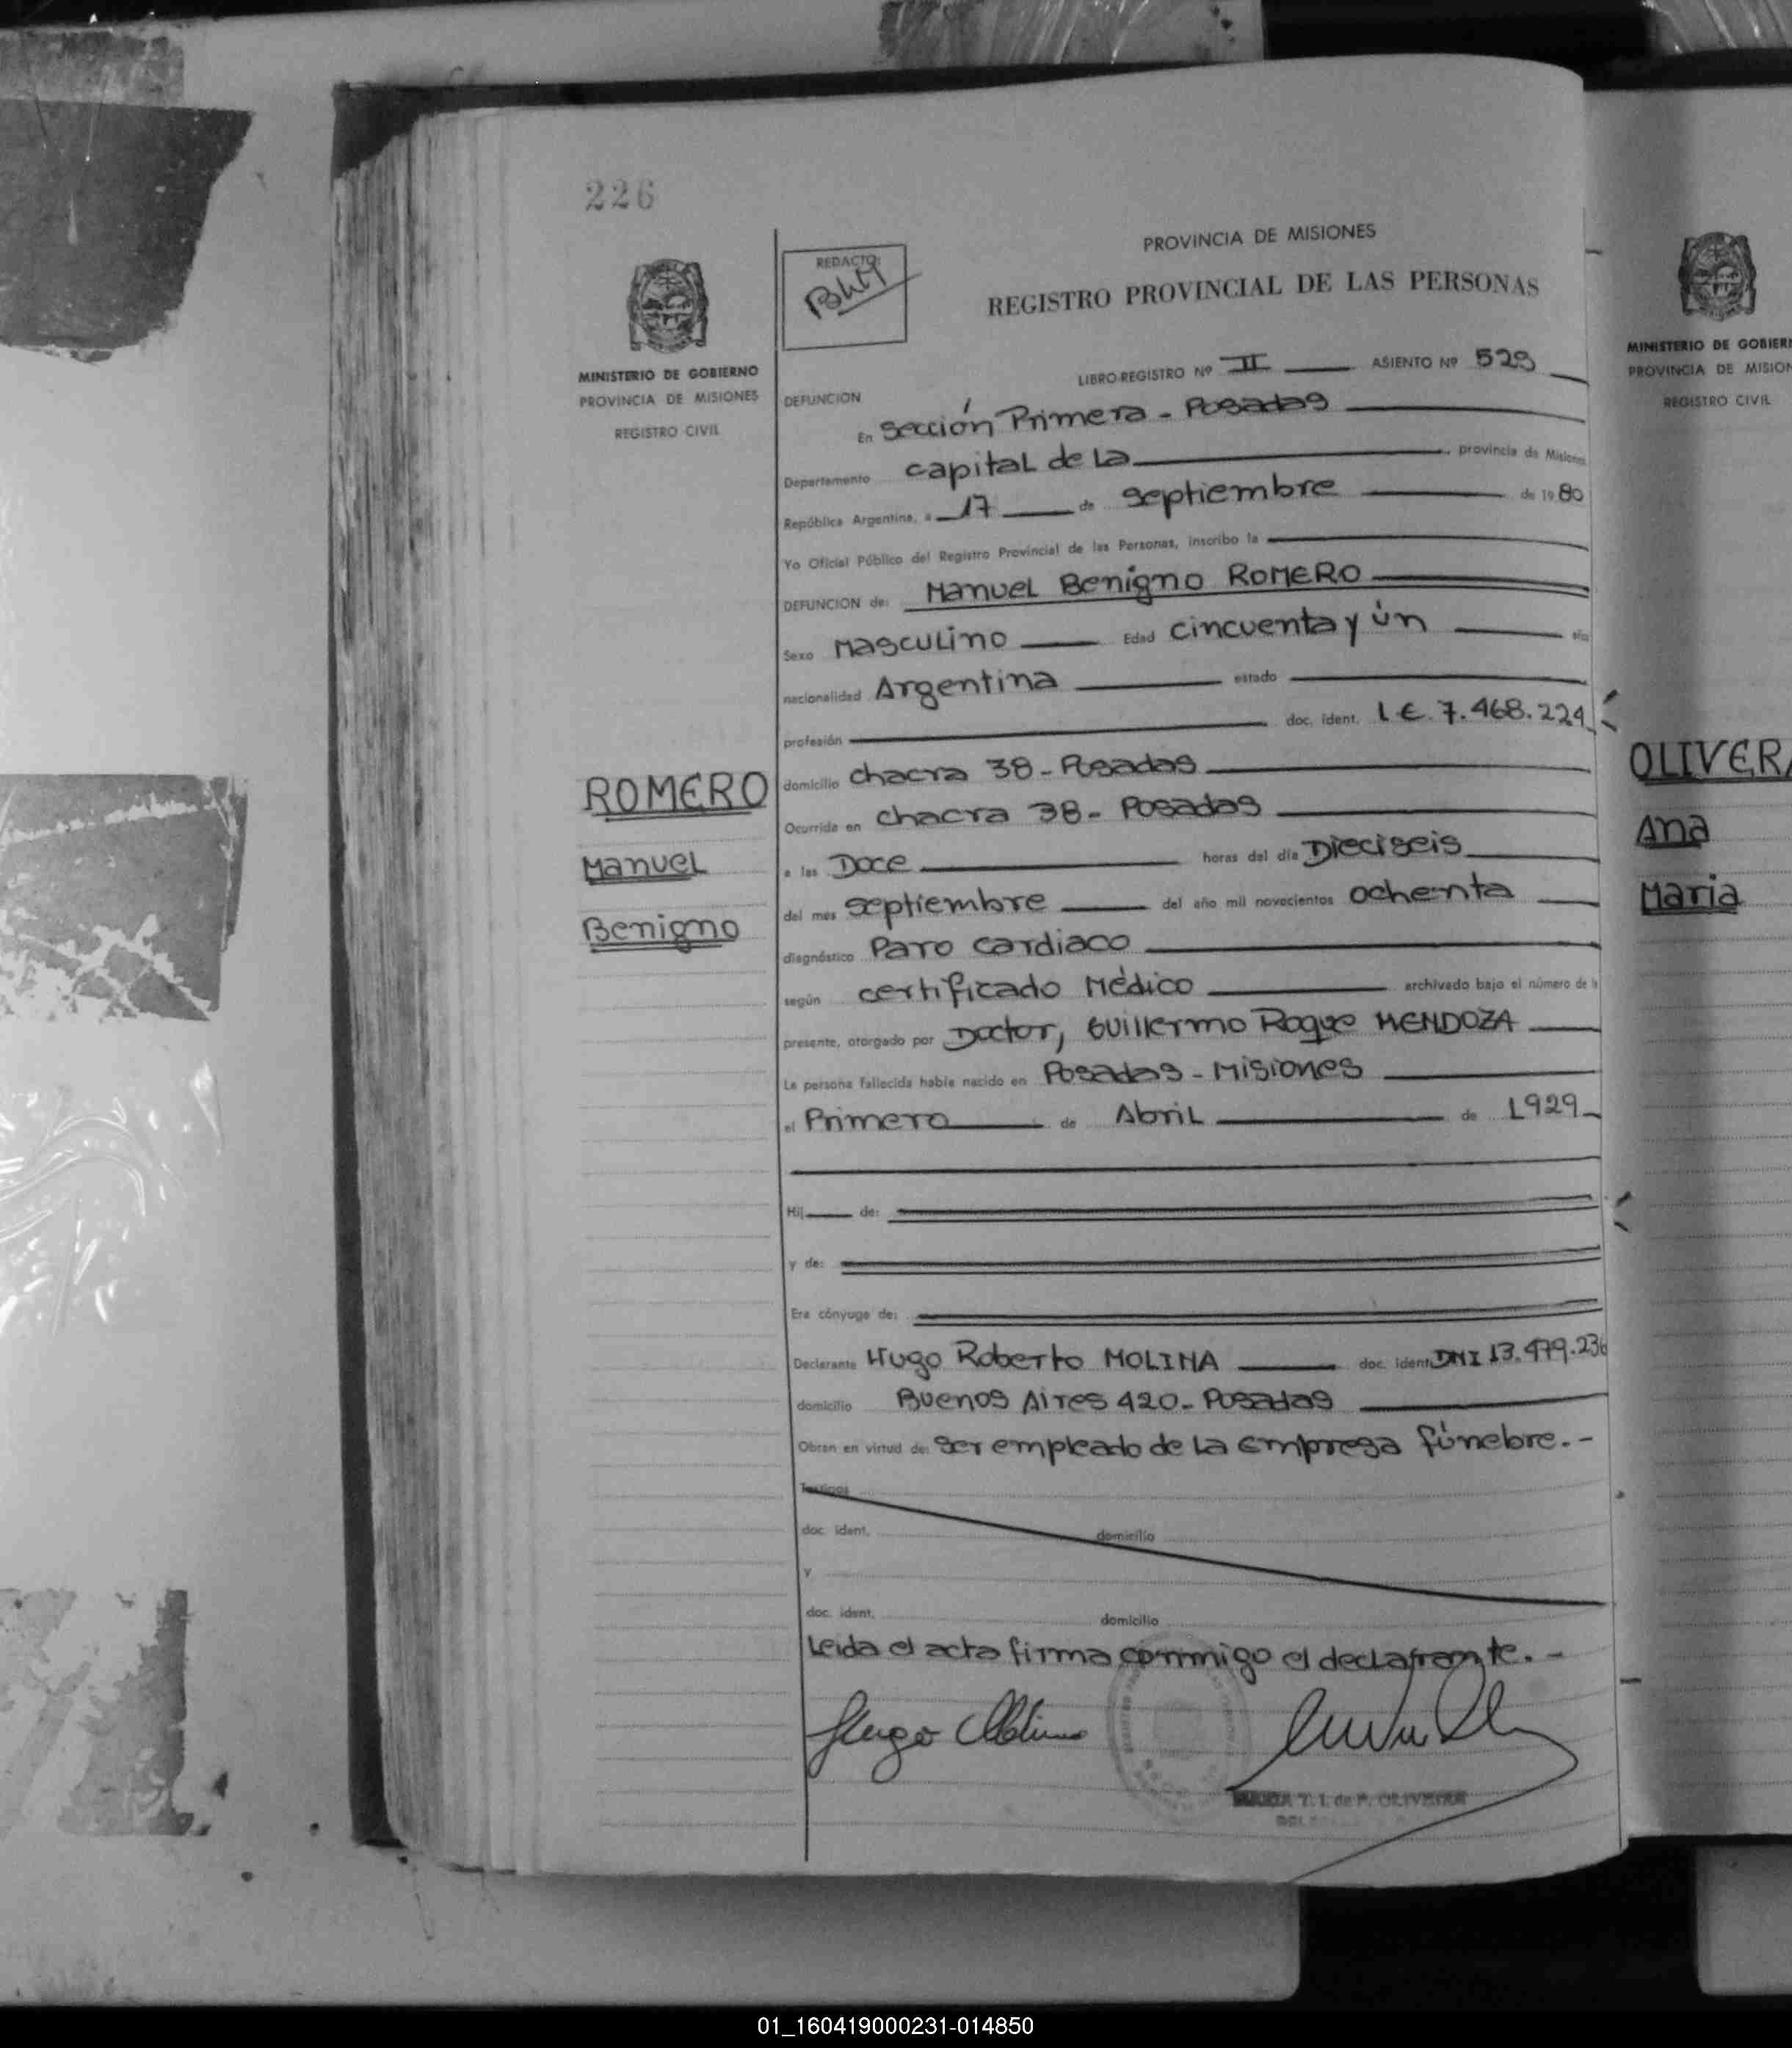 226
PROVINCIA DE MISIONES
REDACTO:
REGISTRO PROVINCIAL DE LAS PERSONAS
MINISTERIO DE GOBIERNO
PROVINCIA DE MISIONES
REGISTRO CIVIL
LIBRO-REGISTRO Nº II ASIENTO Nº 529
DEFUNCION
En Sección Primera - Posadas
Departamento capital de la provincia de Misiones
República Argentina, a 17 de Septiembre de 1980
Yo Oficial Público del Registro Provincial de las Personas, inscribo la
DEFUNCION de: Manuel Benigno ROMERO
Sexo Masculino Edad cincuenta y ún año
nacionalidad Argentina estado
profesión doc. ident. L E. 7.468.224
ROMERO
Manuel
Benigno
domicilio chacra 38 - Posadas
Ocurrida en chacra 38 - Posadas
a las Doce horas del día Dieciseis
del mes septiembre del año mil novecientos ochenta
diagnóstico Paro cardiaco
según certificado Médico archivado bajo el número de la
presente, otorgado por Doctor, Guillermo Roque MENDOZA
La persona fallecida había nacido en Posadas - Misiones
el Primero de Abril de 1929
Hij de:
y de:
Era cónyuge de:
Declarante Hugo Roberto MOLINA doc. ident. DNI 13.479.236
domicilio Buenos Aires 420 - Posadas
Obran en virtud de: Ser empleado de la empresa fúnebre. -
Testigos
doc. ident. domicilio
y
doc. ident. domicilio
Leida el acta firma conmigo el declarante. -
Hugo Molina
T. I. de P. OLIVEIRA
MINISTERIO DE GOBIERN
PROVINCIA DE MISION
REGISTRO CIVIL
OLIVERA
Ana
Maria
01_160419000231-014850